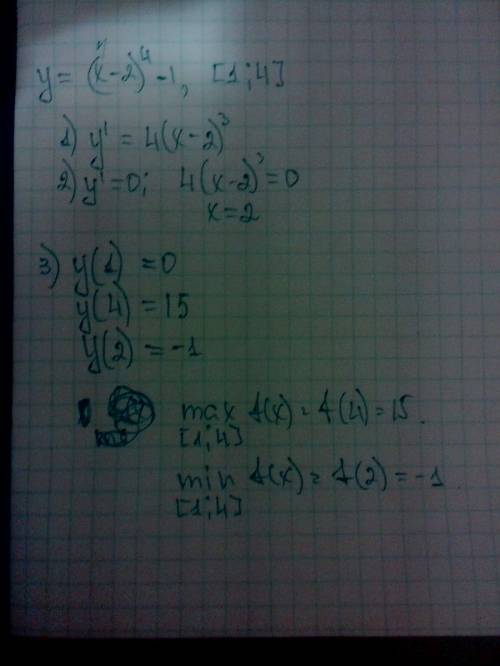 y = (x-2)⁴-1, [1;4]
1) y' = 4(x-2)³
2) y'=0; 4(x-2)³=0
x=2
3) y(1) = 0
y(4) = 15
y(2) = -1
max f(x) = f(4) = 15.
[1;4]
min f(x) = f(2) = -1
[1;4]